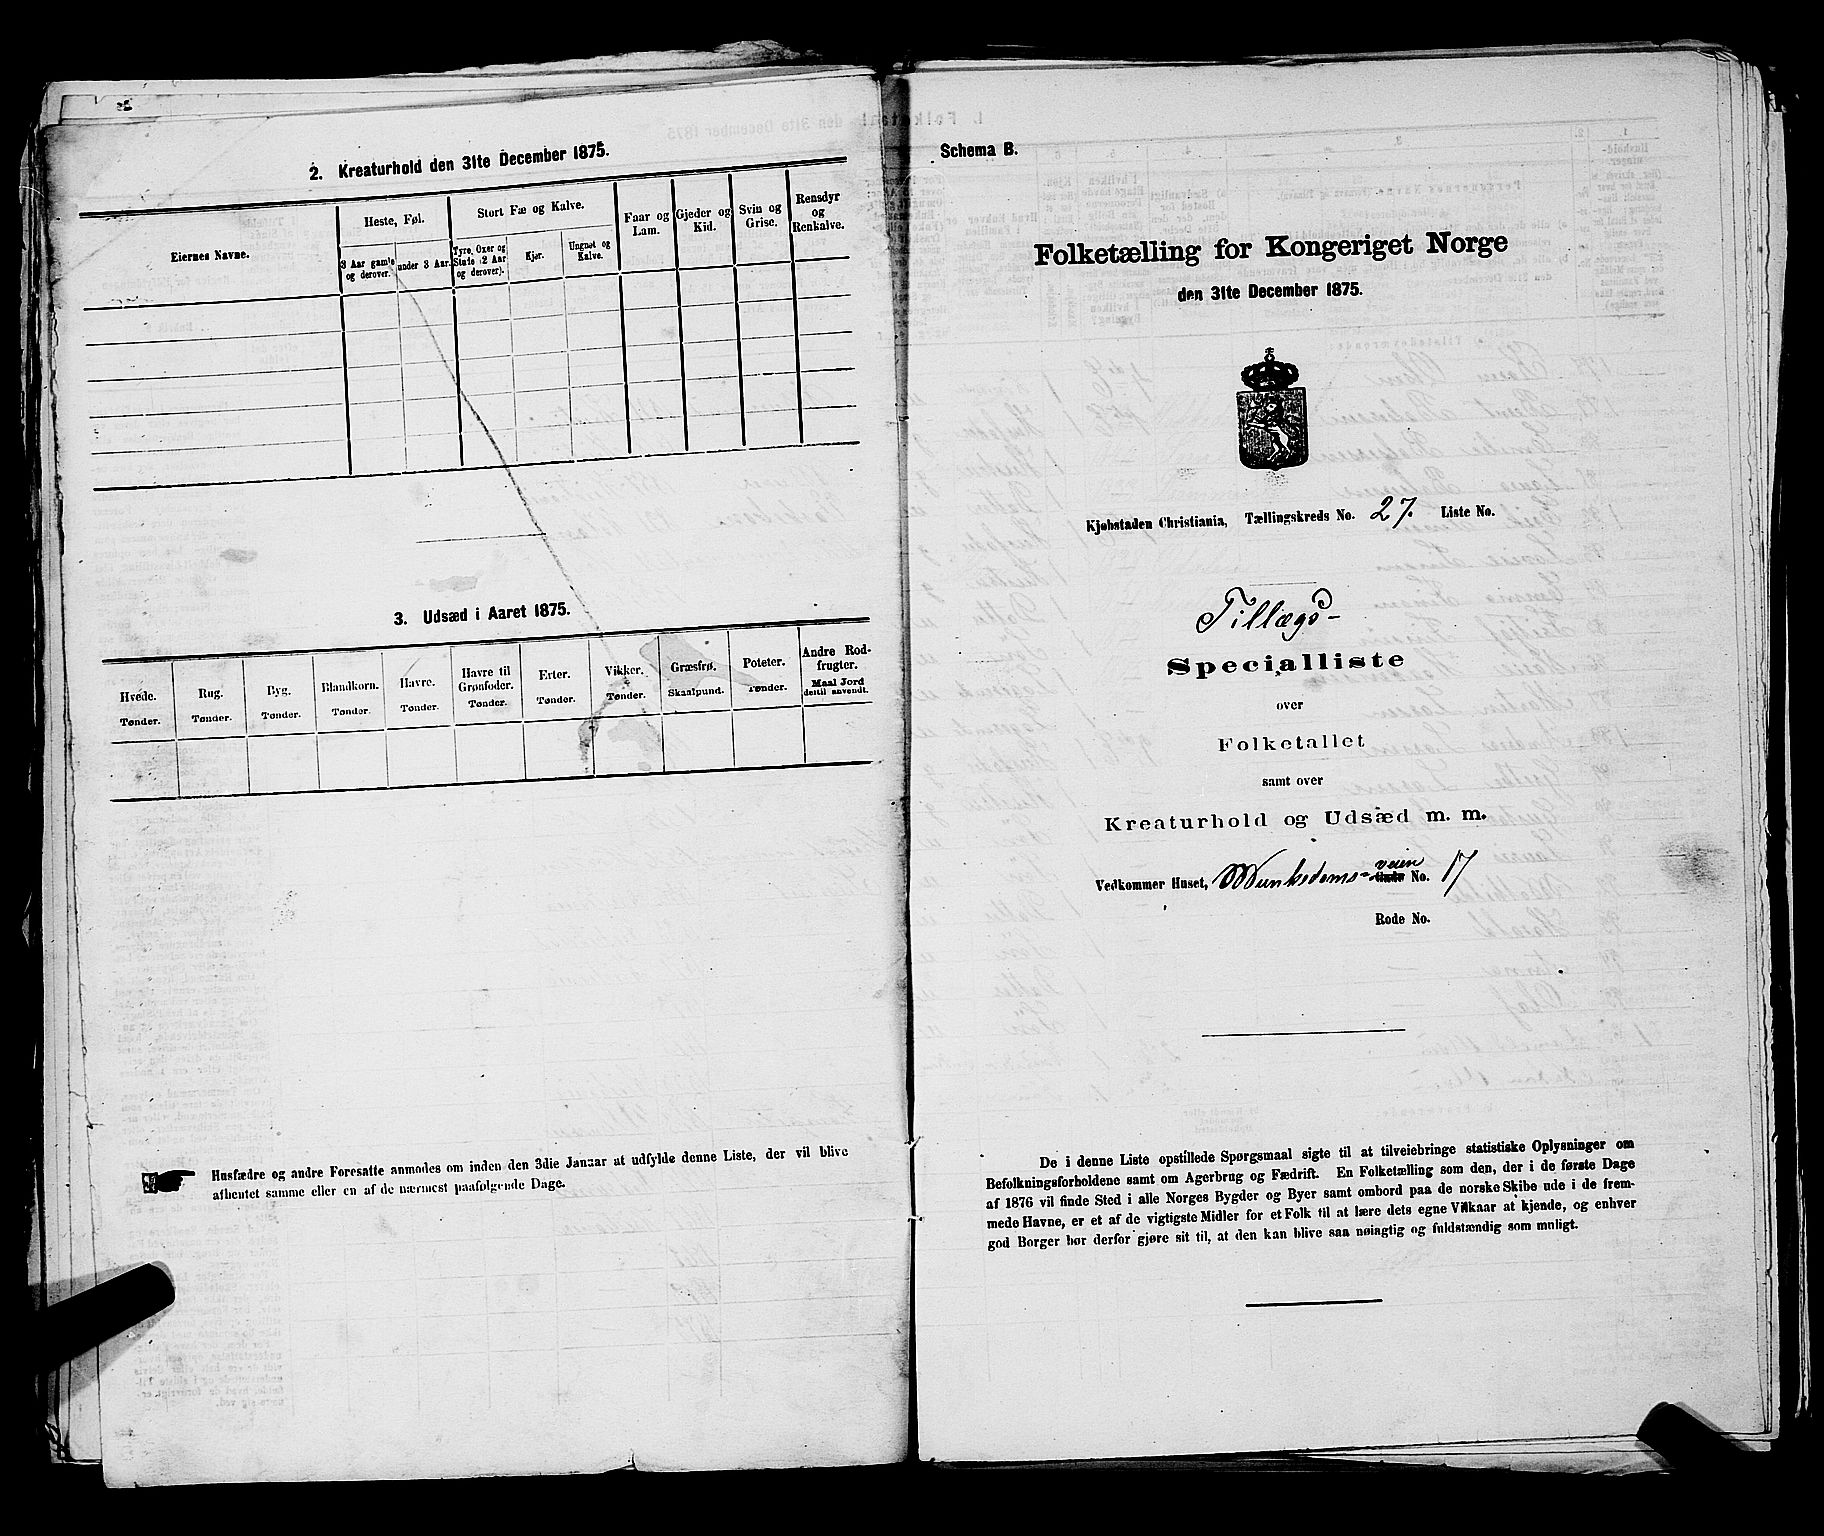 2. Kreaturhold den 31te December 1875.
Eiernes Navne.
Heste, Føl.
3 Aar gamle og derover.
under 3 Aar.
Stort Fæ og Kalve.
Tyre, Oxer og Stude (2 Aar og derover).
Kjør.
Ungnøt og Kalve.
Faar og Lam.
Gjeder og Kid.
Svin og Grise.
Rensdyr og Renkalve.
3. Udsæd i Aaret 1875.
Hvede. Tønder.
Rug. Tønder.
Byg. Tønder.
Blandkorn. Tønder.
Havre. Tønder.
Havre til Grønfoder. Tønder.
Erter. Tønder.
Vikker. Tønder.
Græsfrø. Skaalpund.
Poteter. Tønder.
Andre Rodfrugter. Maal Jord dertil anvendt.
Husfædre og andre Foresatte anmodes om inden den 3die Januar at udfylde denne Liste, der vil blive
afhentet samme eller en af de nærmest paafølgende Dage.
Schema B.
Folketælling for Kongeriget Norge
den 31te December 1875.
Kjøbstaden Christiania, Tællingskreds No. 27. Liste No.
Tillægs-
Specialliste
over
Folketallet
samt over
Kreaturhold og Udsæd m. m.
Vedkommer Huset, Munkedams-veien No. 17
Rode No.
De i denne Liste opstillede Spørgsmaal sigte til at tilveiebringe statistiske Oplysninger om
Befolkningsforholdene samt om Agerbrug og Fædrift. En Folketælling som den, der i de første Dage
af 1876 vil finde Sted i alle Norges Bygder og Byer samt ombord paa de norske Skibe ude i de frem-
mede Havne, er et af de vigtigste Midler for et Folk til at lære dets egne Vilkaar at kjende, og enhver
god Borger bør derfor gjøre sit til, at den kan blive saa nøiagtig og fuldstændig som muligt.